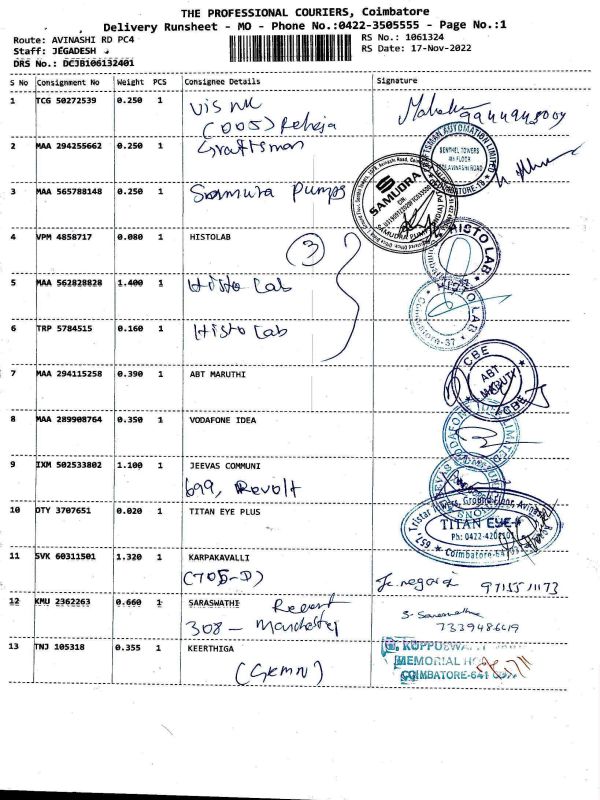 THE PROFESSIONAL COURIERS, Coimbatore
Delivery Runsheet - MO - Phone No.:0422-3505555 - Page No.:1
Route: AVINASHI RD PC4 RS No.: 1061324
Staff: JEGADESH RS Date: 17-Nov-2022
DRS No.: DCJB106132401
S No Consignment No Weight PCS Consignee Details Signature
1 TCG 50272539 0.250 1
(005) Raheja
2 MAA 294255662 0.250 1 Craftsman
SENTHEL TOWERS
4th FLOOR
AVINASHI ROAD
3 MAA 565788148 0.250 1 Samura Pumps
SAMUDRA
4 VPM 4858717 0.080 1 HISTOLAB
3
HISTO LAB
5 MAA 562828828 1.400 1 Histo Lab
HISTO LAB
Coimbatore-37
6 TRP 5784515 0.160 1 Histo Lab
7 MAA 294115258 0.390 1 ABT MARUTHI
CBE
ABT
MARUTI
CBE
8 MAA 289908764 0.350 1 VODAFONE IDEA
9 IXM 502533802 1.100 1 JEEVAS COMMUNI
699, Revolt
10 OTY 3707651 0.020 1 TITAN EYE PLUS
657, Tristar Towers, Ground Floor,
TITAN EYE+
Coimbatore-641
11 SVK 60311501 1.320 1 KARPAKAVALLI
(705-D)
12 KMU 2362263 0.660 1 SARASWATHI
308 - Manchester
7339486619
13 TNJ 105318 0.355 1 KEERTHIGA
(GKMN)
G. KUPPUSWAMY
MEMORIAL
COIMBATORE-641